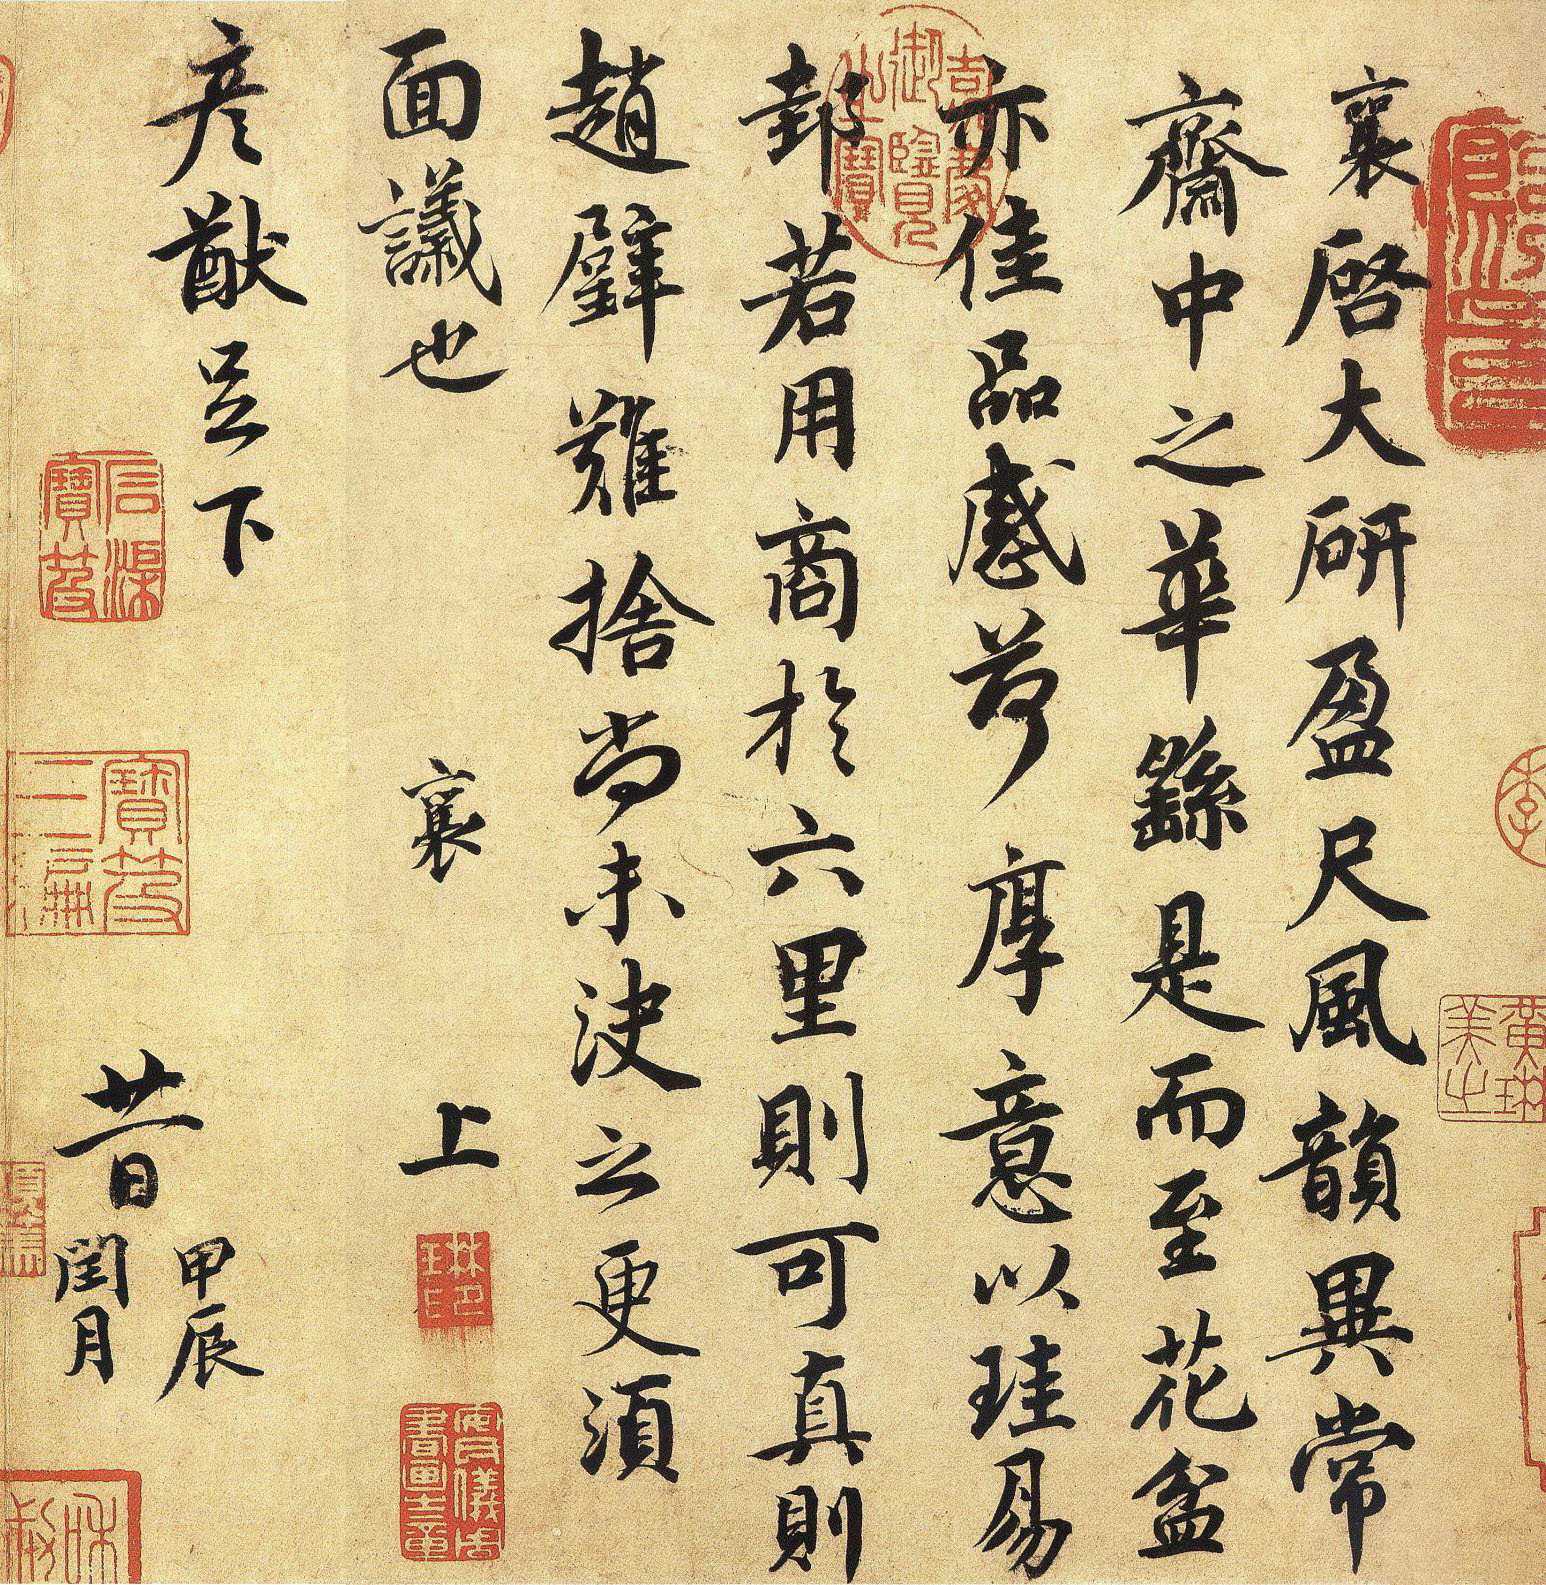 襄啓大研盈尺風韻異常
齋中之華繇是而至花盆
亦佳品感荷厚意以珪易
邽若用商於六里則可真則
趙璧難捨尚未決之更須
面議也 襄 上
彥猷足下
廿一日 甲辰
閏月
嘉慶御覽之寶